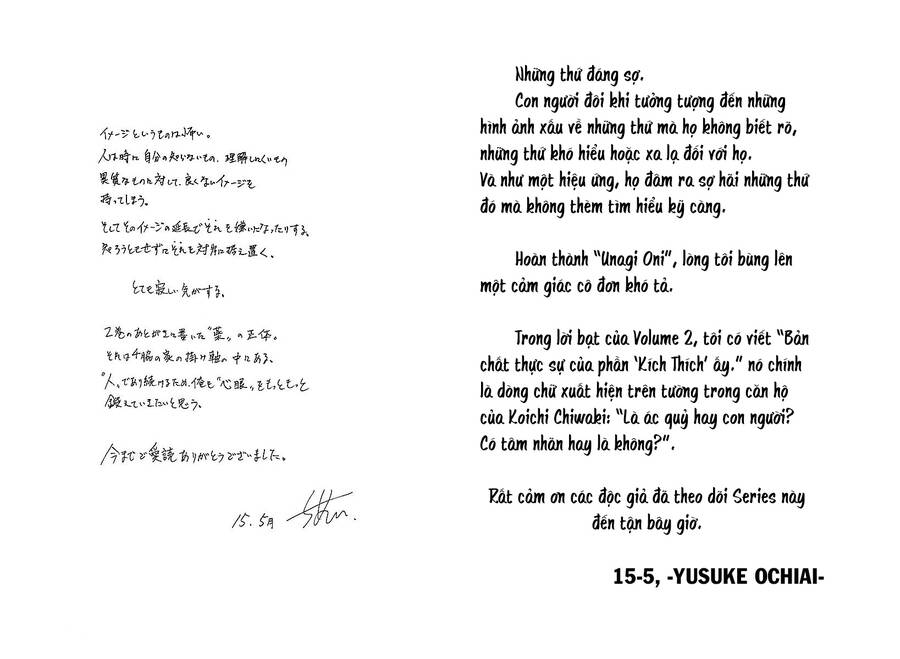 イメージというものは怖い。
人は時に自分の知らないもの、理解しにくいもの
異質なものに対して、良くないイメージを
持ってしまう。
そしてそのイメージの延長でそれを嫌いになったりする、
知ろうとせずにそれを対岸に据え置く、
とても寂しい気がする、
2巻のあとがきに書いた"薬"の正体。
それは千脇の家の掛け軸の中にある、
"人"であり続けるため、俺も"心眼"をもっともっと
鍛えていきたいと思う、
今まで愛読ありがとうございました。
15. 5月
Những thứ đáng sợ.
Con người đôi khi tưởng tượng đến những
hình ảnh xấu về những thứ mà họ không biết rõ,
những thứ khó hiểu hoặc xa lạ đối với họ.
Và như một hiệu ứng, họ đâm ra sợ hãi những thứ
đó mà không thèm tìm hiểu kỹ càng.
Hoàn thành “Unagi Oni”, lòng tôi bùng lên
một cảm giác cô đơn khó tả.
Trong lời bạt của Volume 2, tôi có viết “Bản
chất thực sự của phần ‘Kích Thích’ ấy.” nó chính
là dòng chữ xuất hiện trên tường trong căn hộ
của Koichi Chiwaki: “Là ác quỷ hay con người?
Có tâm nhãn hay là không?”.
Rất cảm ơn các độc giả đã theo dõi Series này
đến tận bây giờ.
15-5, -YUSUKE OCHIAI-